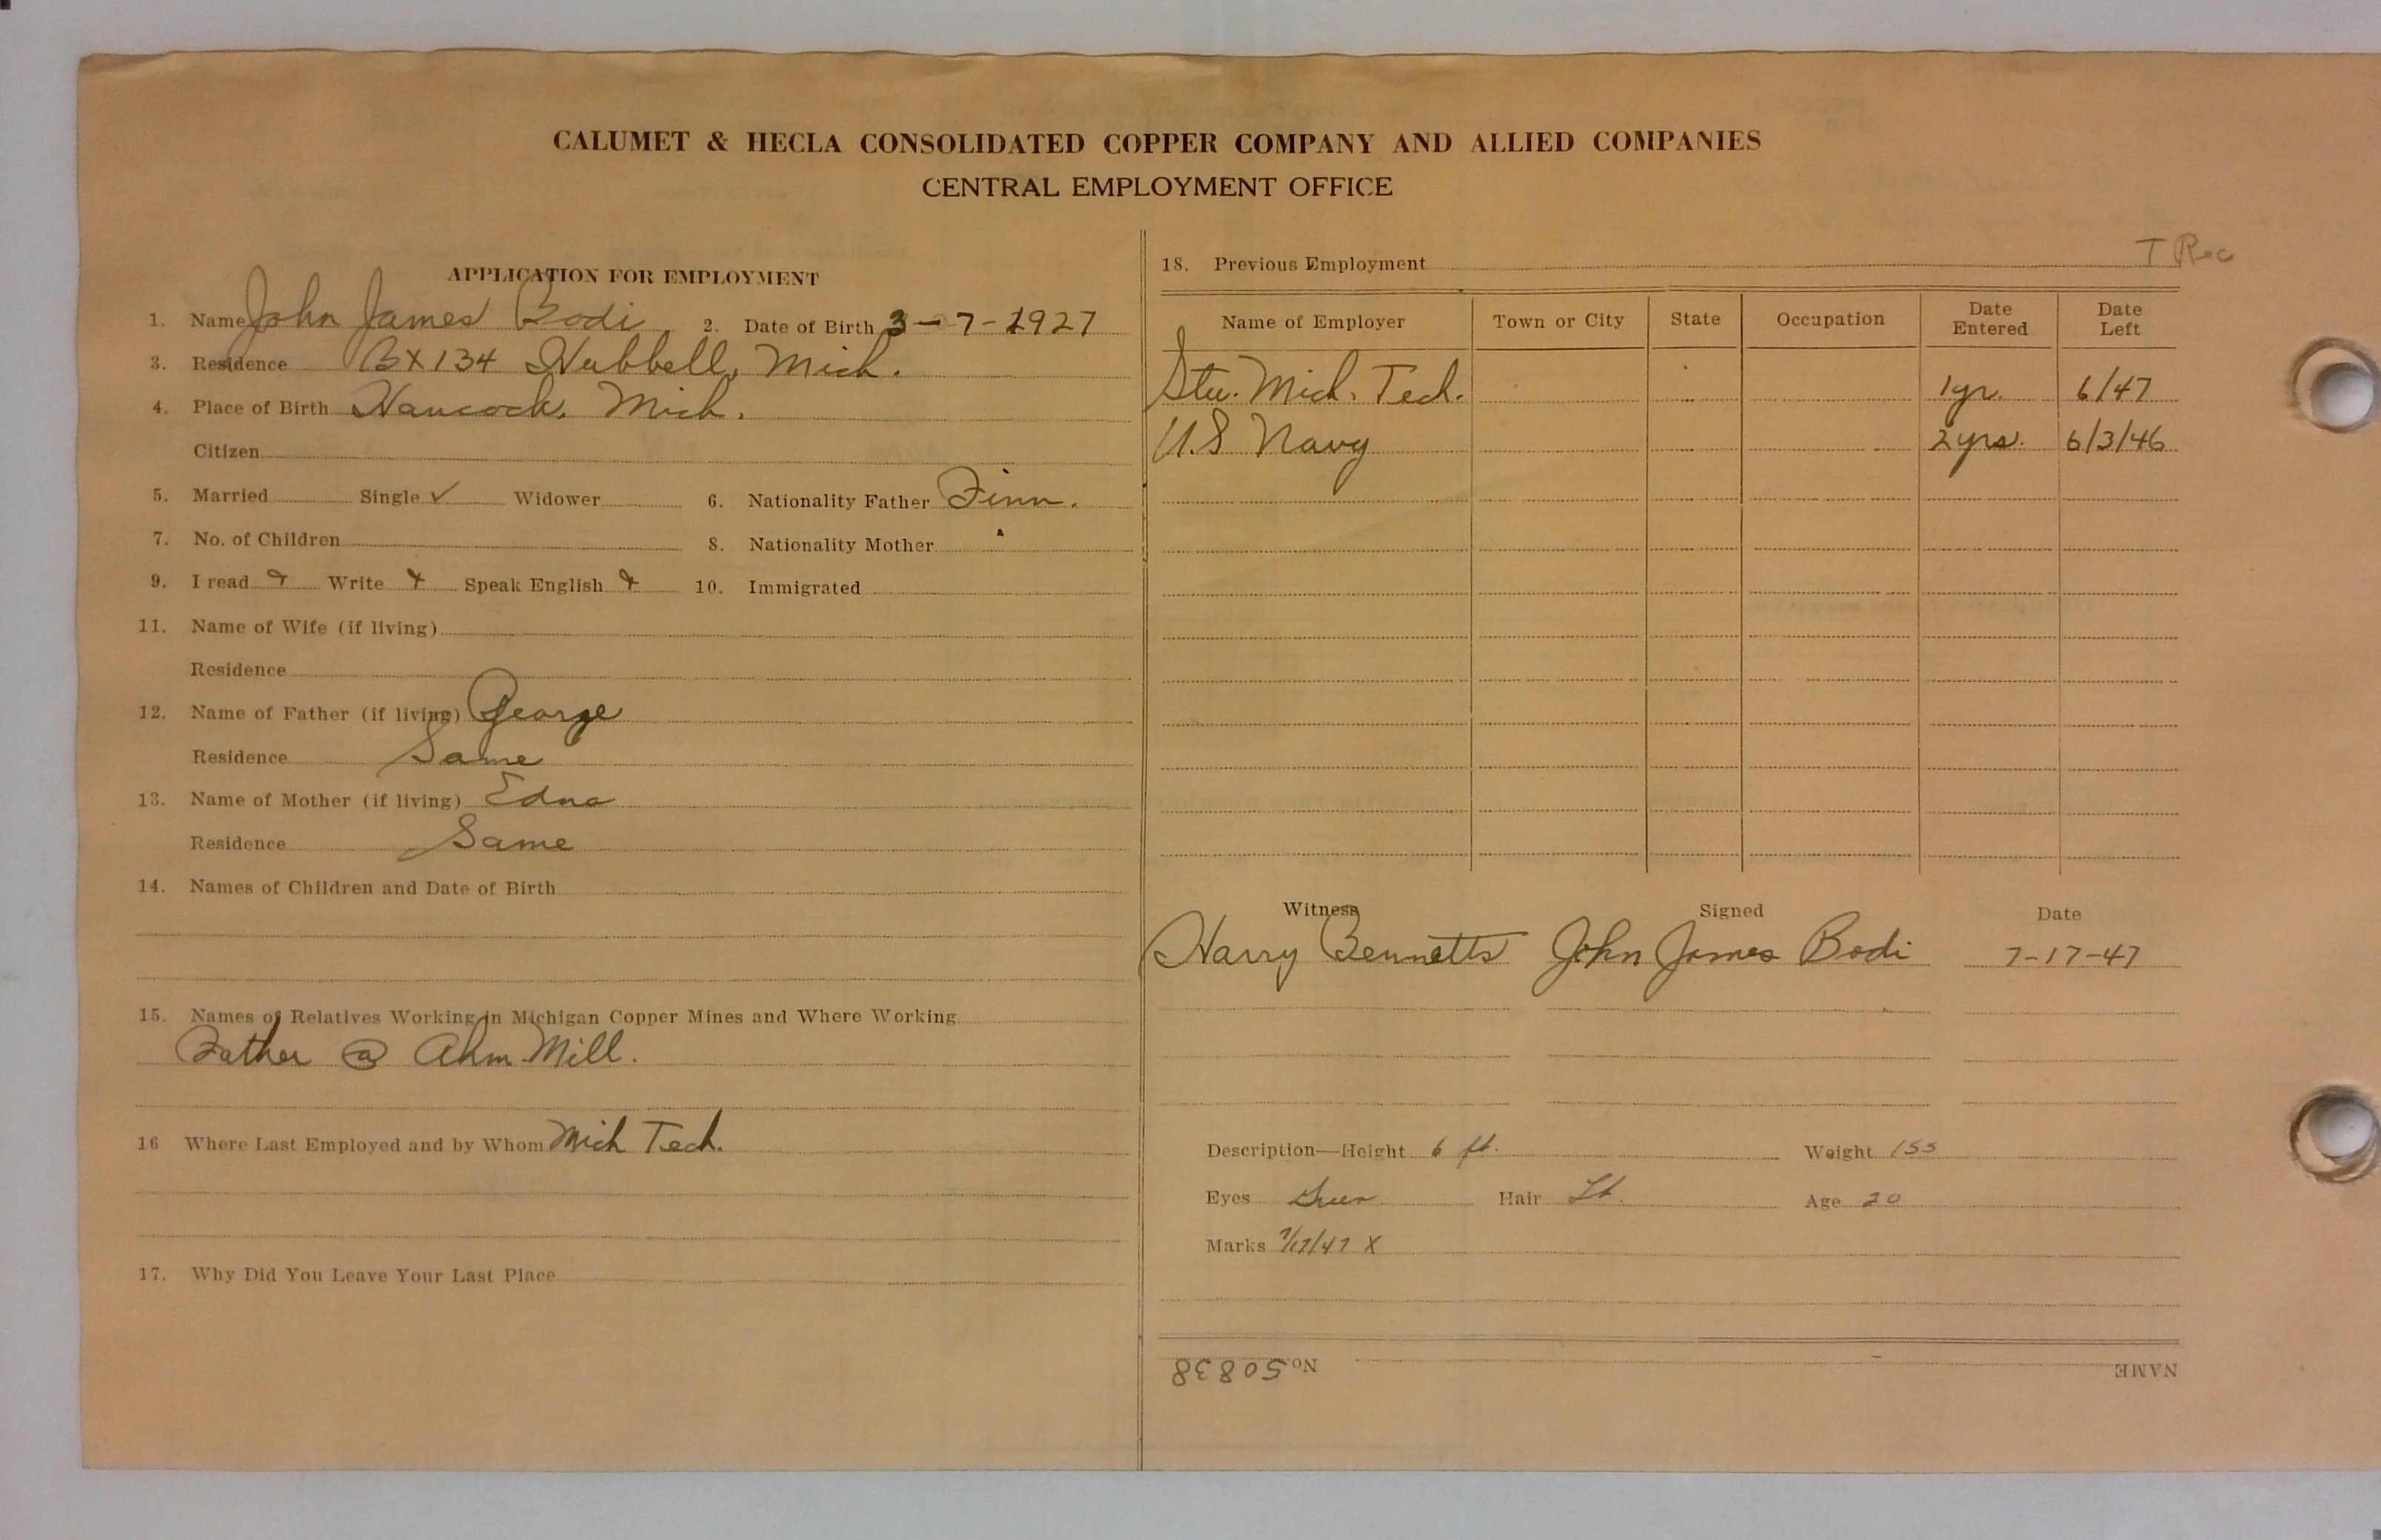 CALUMET & HECLA CONSOLIDATED COPPER COMPANY AND ALLIED COMPANIES
CENTRAL EMPLOYMENT OFFICE
APPLICATION FOR EMPLOYMENT
1. Name John James Bodi 2. Date of Birth 3-7-1927
3. Residence BX134 Hubbell, Mich.
4. Place of Birth Hancock, Mich.
Citizen
5. Married Single ✓ Widower 6. Nationality Father Finn.
7. No. of Children 8. Nationality Mother "
9. I read Write Speak English 10. Immigrated
11. Name of Wife (if living)
Residence
12. Name of Father (if living) George
Residence Same
13. Name of Mother (if living) Edna
Residence Same
14. Names of Children and Date of Birth
15. Names of Relatives Working in Michigan Copper Mines and Where Working
Father @ Ahm. Mill.
16 Where Last Employed and by Whom Mich Tech.
17. Why Did You Leave Your Last Place
T Rec
18. Previous Employment
Name of Employer Town or City State Occupation Date Entered Date Left
Stu. Mich. Tech. 1yr. 6/47
U.S Navy 2yrs. 6/3/46
Witness Signed Date
Harry Bennetts John James Bodi 7-17-47
Description—Height 6 ft. Weight 155
Eyes Green Hair Lt. Age 20
Marks 7/17/47 X
No. 50838 NAME